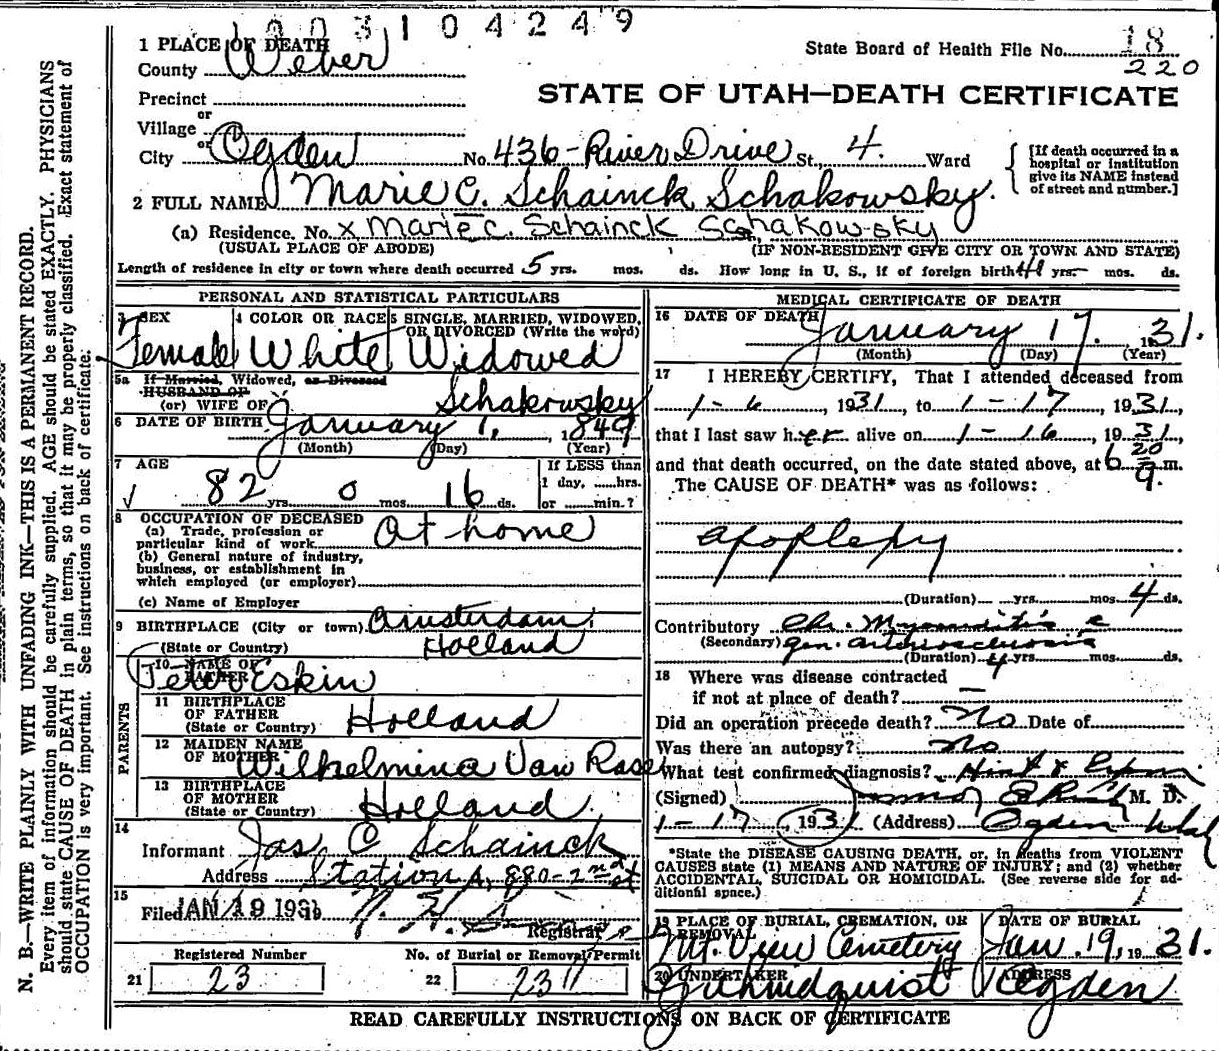 1003104249
1 PLACE OF DEATH
County Weber
State Board of Health File No. 18
220
Precinct
or
Village
or
City Ogden No. 436-River Drive St., 4. Ward
STATE OF UTAH—DEATH CERTIFICATE
[If death occurred in a hospital or institution give its NAME instead of street and number.]
2 FULL NAME Marie C. Schainck Schakowsky.
(a) Residence. No. x Marie C. Schainck Schakowsky
(USUAL PLACE OF ABODE) (IF NON-RESIDENT GIVE CITY OR TOWN AND STATE)
Length of residence in city or town where death occurred 5 yrs. mos. ds. How long in U. S., if of foreign birth 41 yrs. mos. ds.
PERSONAL AND STATISTICAL PARTICULARS
3 SEX 4 COLOR OR RACE 5 SINGLE, MARRIED, WIDOWED, OR DIVORCED (Write the word)
Female White Widowed
5a If Married, Widowed, or Divorced
HUSBAND OF
(or) WIFE OF Schakowsky
6 DATE OF BIRTH January 1, 1849
(Month) (Day) (Year)
7 AGE If LESS than
82 yrs. 0 mos. 16 ds. 1 day, hrs.
or min.?
8 OCCUPATION OF DECEASED
(a) Trade, profession or
particular kind of work At home
(b) General nature of industry,
business, or establishment in
which employed (or employer)
(c) Name of Employer
9 BIRTHPLACE (City or town) Amsterdam,
(State or Country) Holland
PARENTS
10 NAME OF FATHER Eskin
11 BIRTHPLACE
OF FATHER Holland
(State or Country)
12 MAIDEN NAME
OF MOTHER Wilhelmina Van Rase
13 BIRTHPLACE
OF MOTHER Holland.
(State or Country)
14
Informant Jas C Schainck
Address Station A, 880-2nd st
15
Filed JAN 19 1931
Registrar
Registered Number No. of Burial or Removal Permit
21 23 22 2311
MEDICAL CERTIFICATE OF DEATH
16 DATE OF DEATH January 17. 1931.
(Month) (Day) (Year)
17 I HEREBY CERTIFY, That I attended deceased from
1-6, 1931, to 1-17, 1931,
that I last saw her alive on 1-16, 1931,
and that death occurred, on the date stated above, at 6 20 a. m.
The CAUSE OF DEATH* was as follows:
apoplexy
(Duration) yrs. mos. 4 ds.
Contributory Chr. Myocarditis c
(Secondary) gen. arteriosclerosis
(Duration) 4 yrs. mos. ds.
18 Where was disease contracted
if not at place of death? —
Did an operation precede death? No Date of
Was there an autopsy? No
What test confirmed diagnosis? Hist &
(Signed) M. D.
1-17, 1931 (Address) Ogden Utah
*State the DISEASE CAUSING DEATH, or, in deaths from VIOLENT
CAUSES state (1) MEANS AND NATURE OF INJURY; and (2) whether
ACCIDENTAL, SUICIDAL OR HOMICIDAL. (See reverse side for ad-
ditional space.)
19 PLACE OF BURIAL, CREMATION, OR REMOVAL DATE OF BURIAL
Mt. View Cemetery Jan. 19, 1931.
20 UNDERTAKER ADDRESS
Lindquist Ogden
READ CAREFULLY INSTRUCTIONS ON BACK OF CERTIFICATE
N. B.—WRITE PLAINLY WITH UNFADING INK—THIS IS A PERMANENT RECORD.
Every item of information should be carefully supplied. AGE should be stated EXACTLY. PHYSICIANS
should state CAUSE OF DEATH in plain terms, so that it may be properly classified. Exact statement of
OCCUPATION is very important. See instructions on back of certificate.